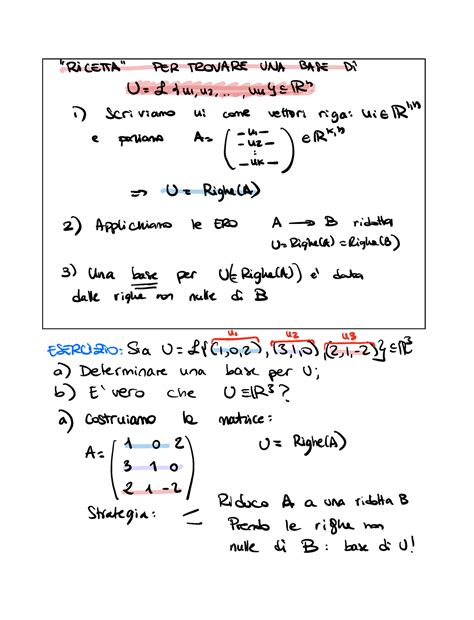 "RICETTA" PER TROVARE UNA BASE DI
U = L{u1, u2, ..., uk} ⊆ ℝⁿ
1) Scriviamo ui come vettori riga: ui ∈ ℝ^{1,n}
e poniamo A = ( —u1— —u2— ⋮ —uk— ) ∈ ℝ^{k,n}
⇒ U = Righe(A)
2) Applichiamo le ERO A → B ridotta
U = Righe(A) = Righe(B)
3) Una base per U(= Righe(A)) e' data
dalle righe non nulle di B
u1 u2 u3
ESERCIZIO: Sia U = L{(1,0,2), (3,1,0), (2,1,-2)} ⊆ ℝ³
a) Determinare una base per U;
b) E' vero che U = ℝ³?
a) Costruiamo la matrice:
A = ( 1 0 2 U = Righe(A)
3 1 0
2 1 -2 )
Strategia: – Riduco A a una ridotta B
Prendo le righe non
nulle di B: base di U!